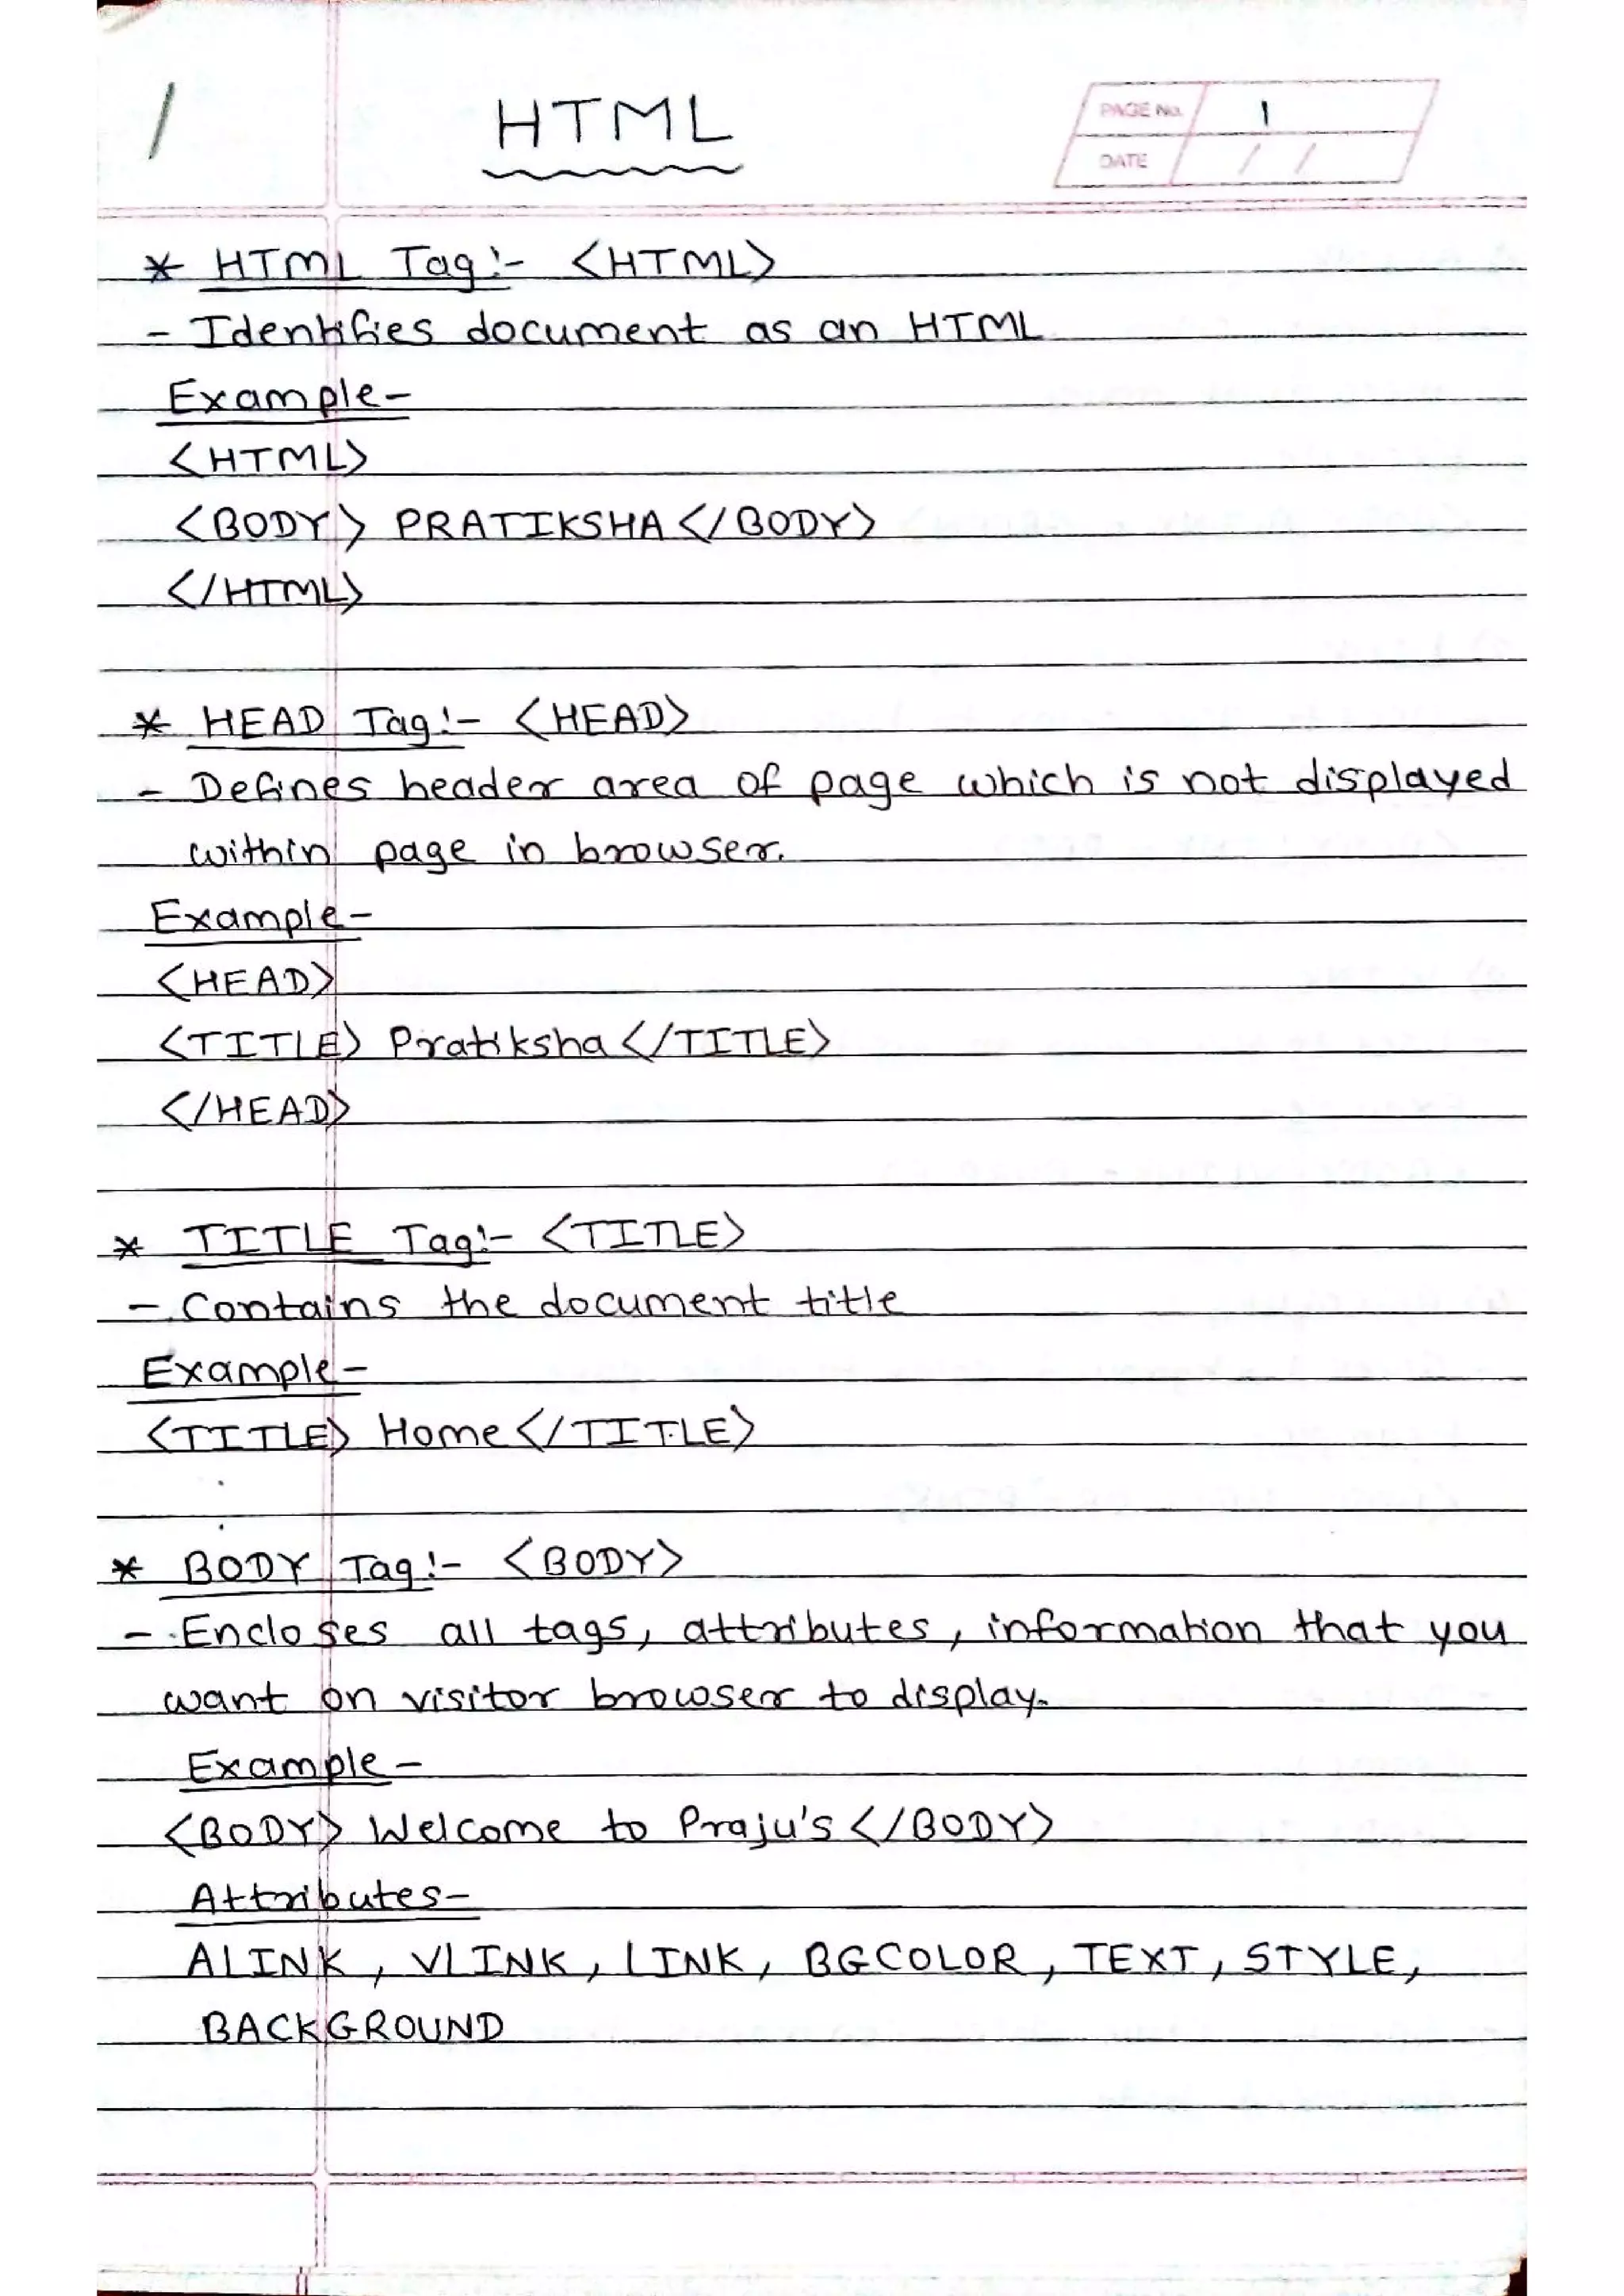 1
HTML
PAGE No. 1
DATE / /
* HTML Tag:- <HTML>
- Identifies document as an HTML
Example-
<HTML>
<BODY> PRATIKSHA </BODY>
</HTML>
* HEAD Tag:- <HEAD>
- Defines header area of page which is not displayed
within page in browser.
Example-
<HEAD>
<TITLE> Pratiksha </TITLE>
</HEAD>
* TITLE Tag:- <TITLE>
- Contains the document title
Example-
<TITLE> Home </TITLE>
* BODY Tag:- <BODY>
- Encloses all tags, attributes, information that you
want on visitor browser to display.
Example-
<BODY> Welcome to Praju's </BODY>
Attributes-
ALINK, VLINK, LINK, BGCOLOR, TEXT, STYLE,
BACKGROUND